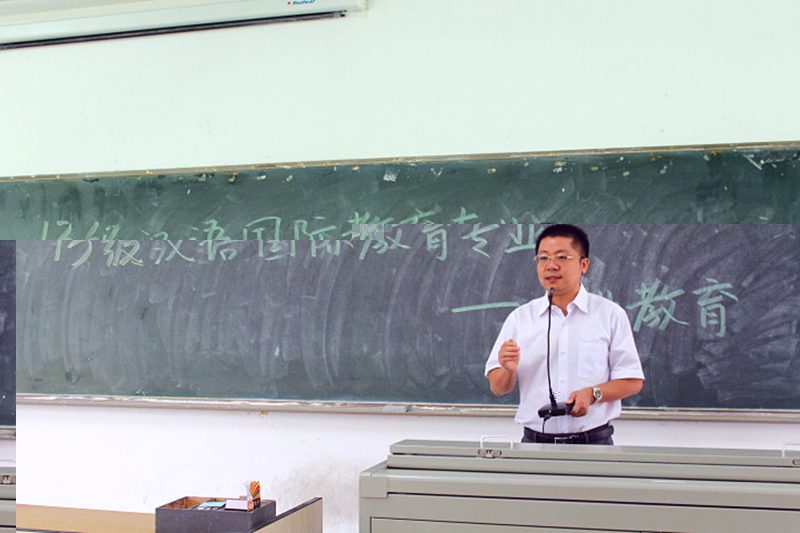 Redleaf
13级汉语国际教育专业
—教育